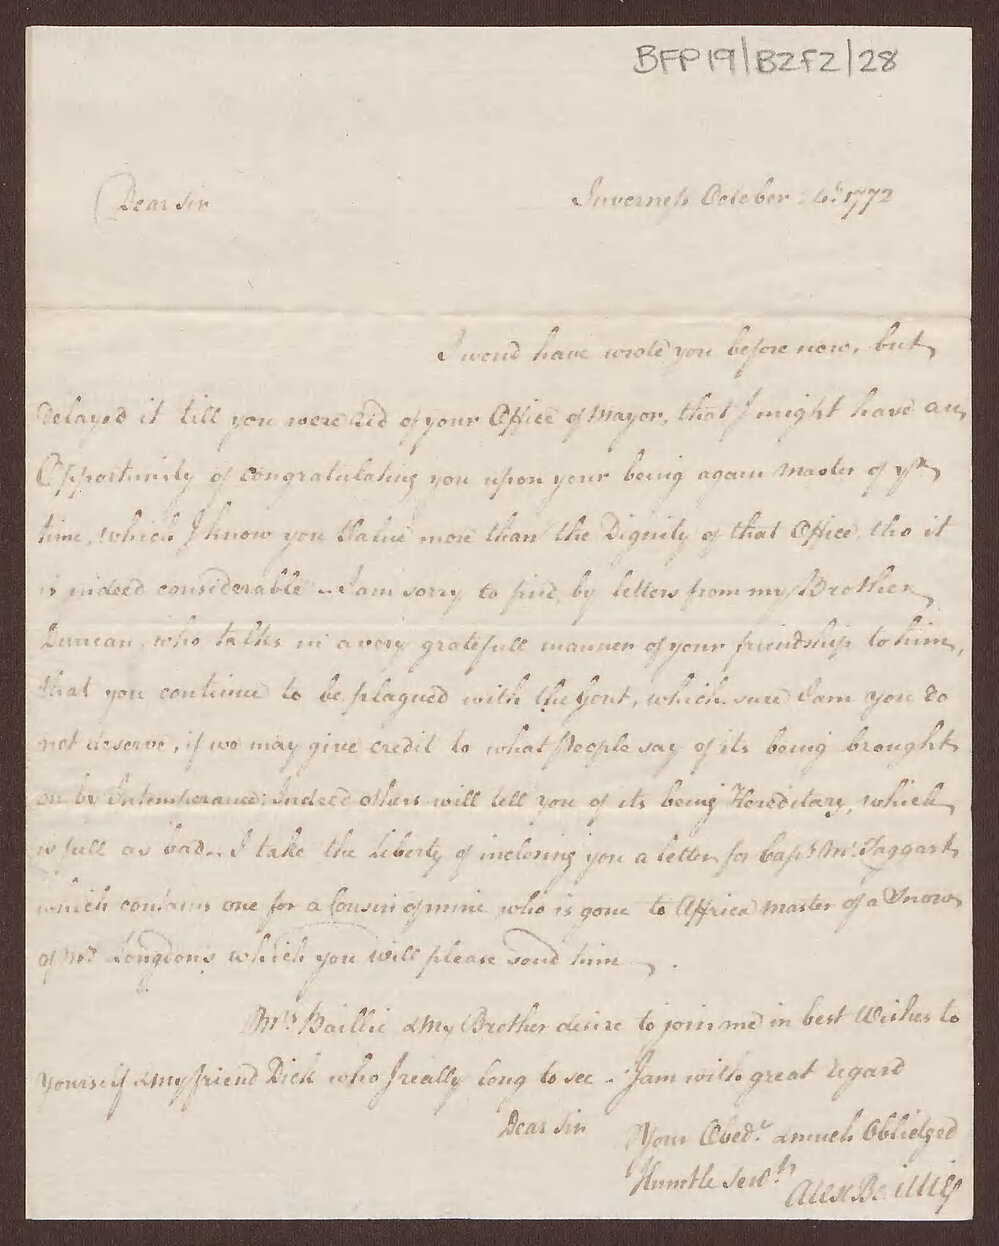 BFP19/B2F2/28
Dear Sir Inverness October 4th 1772
I woud have wrote you before now, but
delayed it till you were Rid of your Office of Mayor, that I might have an
Opportunity of congratulating you upon your being again Master of yr
time, which I know you Value more than the Dignity of that Office, tho it
is indeed considerable - I am sorry to find by letters from my Brother
Duncan, who talks in a very gratefull manner of your friendship to him,
that you continue to be plagued with the Gout, which sure I am you do
not deserve, if we may give credit to what People say of its being brought
on by Intemperance; Indeed others will tell you of its being Hereditary, which
is full as bad. I take the Liberty of inclosing you a letter for Capt McTaggart
which contains one for a Cousin of mine who is gone to Affrica Master of a Snow
of Mr Longdon's which you will please send him.
Mrs Baillie & My Brother desire to join me in best Wishes to
yourself & my friend Dick who I really long to see. I am with great regard
Dear Sir Your Obedt & much Oblidged
Humble Servt
Alex Baillie